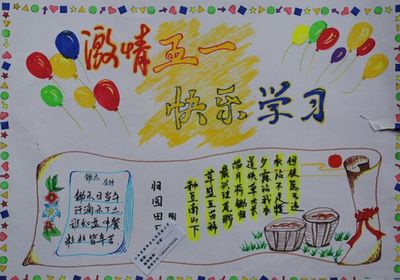 激情五一
快乐学习
锄禾
古诗
锄禾日当午
汗滴禾下土
谁知盘中餐
粒粒皆辛苦
归园田
种豆南山下
草盛豆苗稀
晨兴理荒秽
带月荷锄归
道狭草木长
夕露沾我衣
衣沾不足惜
但使愿无违